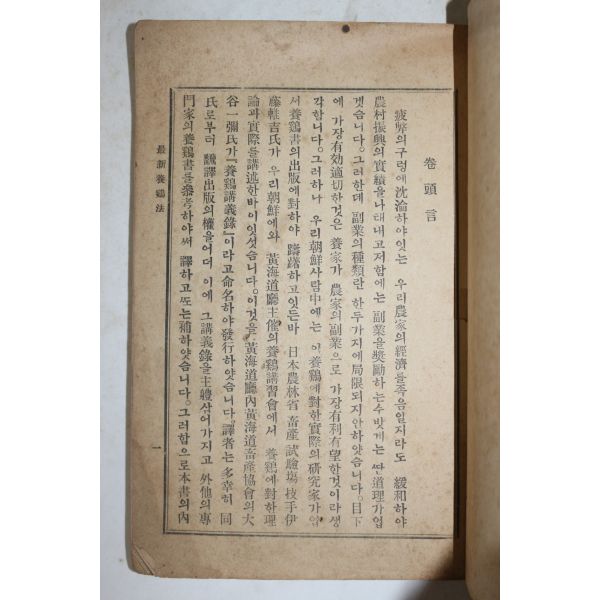 卷頭言
疲弊의구렁에沈淪하야잇는 우리農家의經濟를족음일지라도 緩和하야
農村振興의實績을나타내고저함에는 副業을奬勵하는수밧게는 싼道理가업
겟슴니다。그러한데 副業의種類란 한두가지에局限되지안하얏슴니다。目下
에 가장有効適切한것은 養家가 農家의副業으로 가장有利有望한것이라생
각합니다。그러하나 우리朝鮮사람中에는 이養鷄에對한實際의硏究家가업
서養鷄書의出版에對하야 躊躇하고잇든바 日本農林省 畜產試驗塲 技手伊
藤 吉氏가 우리朝鮮에와 黃海道廳主催의養鷄講習會에서 養鷄에對한理
論과實際를講述한바이잇섯슴니다。이것을 黃海道廳內黃海道畜產協會의大
谷一彌氏가『養鷄講義錄』이라고命名하야發行하얏슴니다。譯者는多幸히 同
氏로부터 飜譯出版의權을어더 이에 그講義錄을主軆삼어가지고 外他의專
門家의養鷄書를參考하야써 譯하고또는補하얏슴니다。그러함으로本書의內
最新養鷄法
一